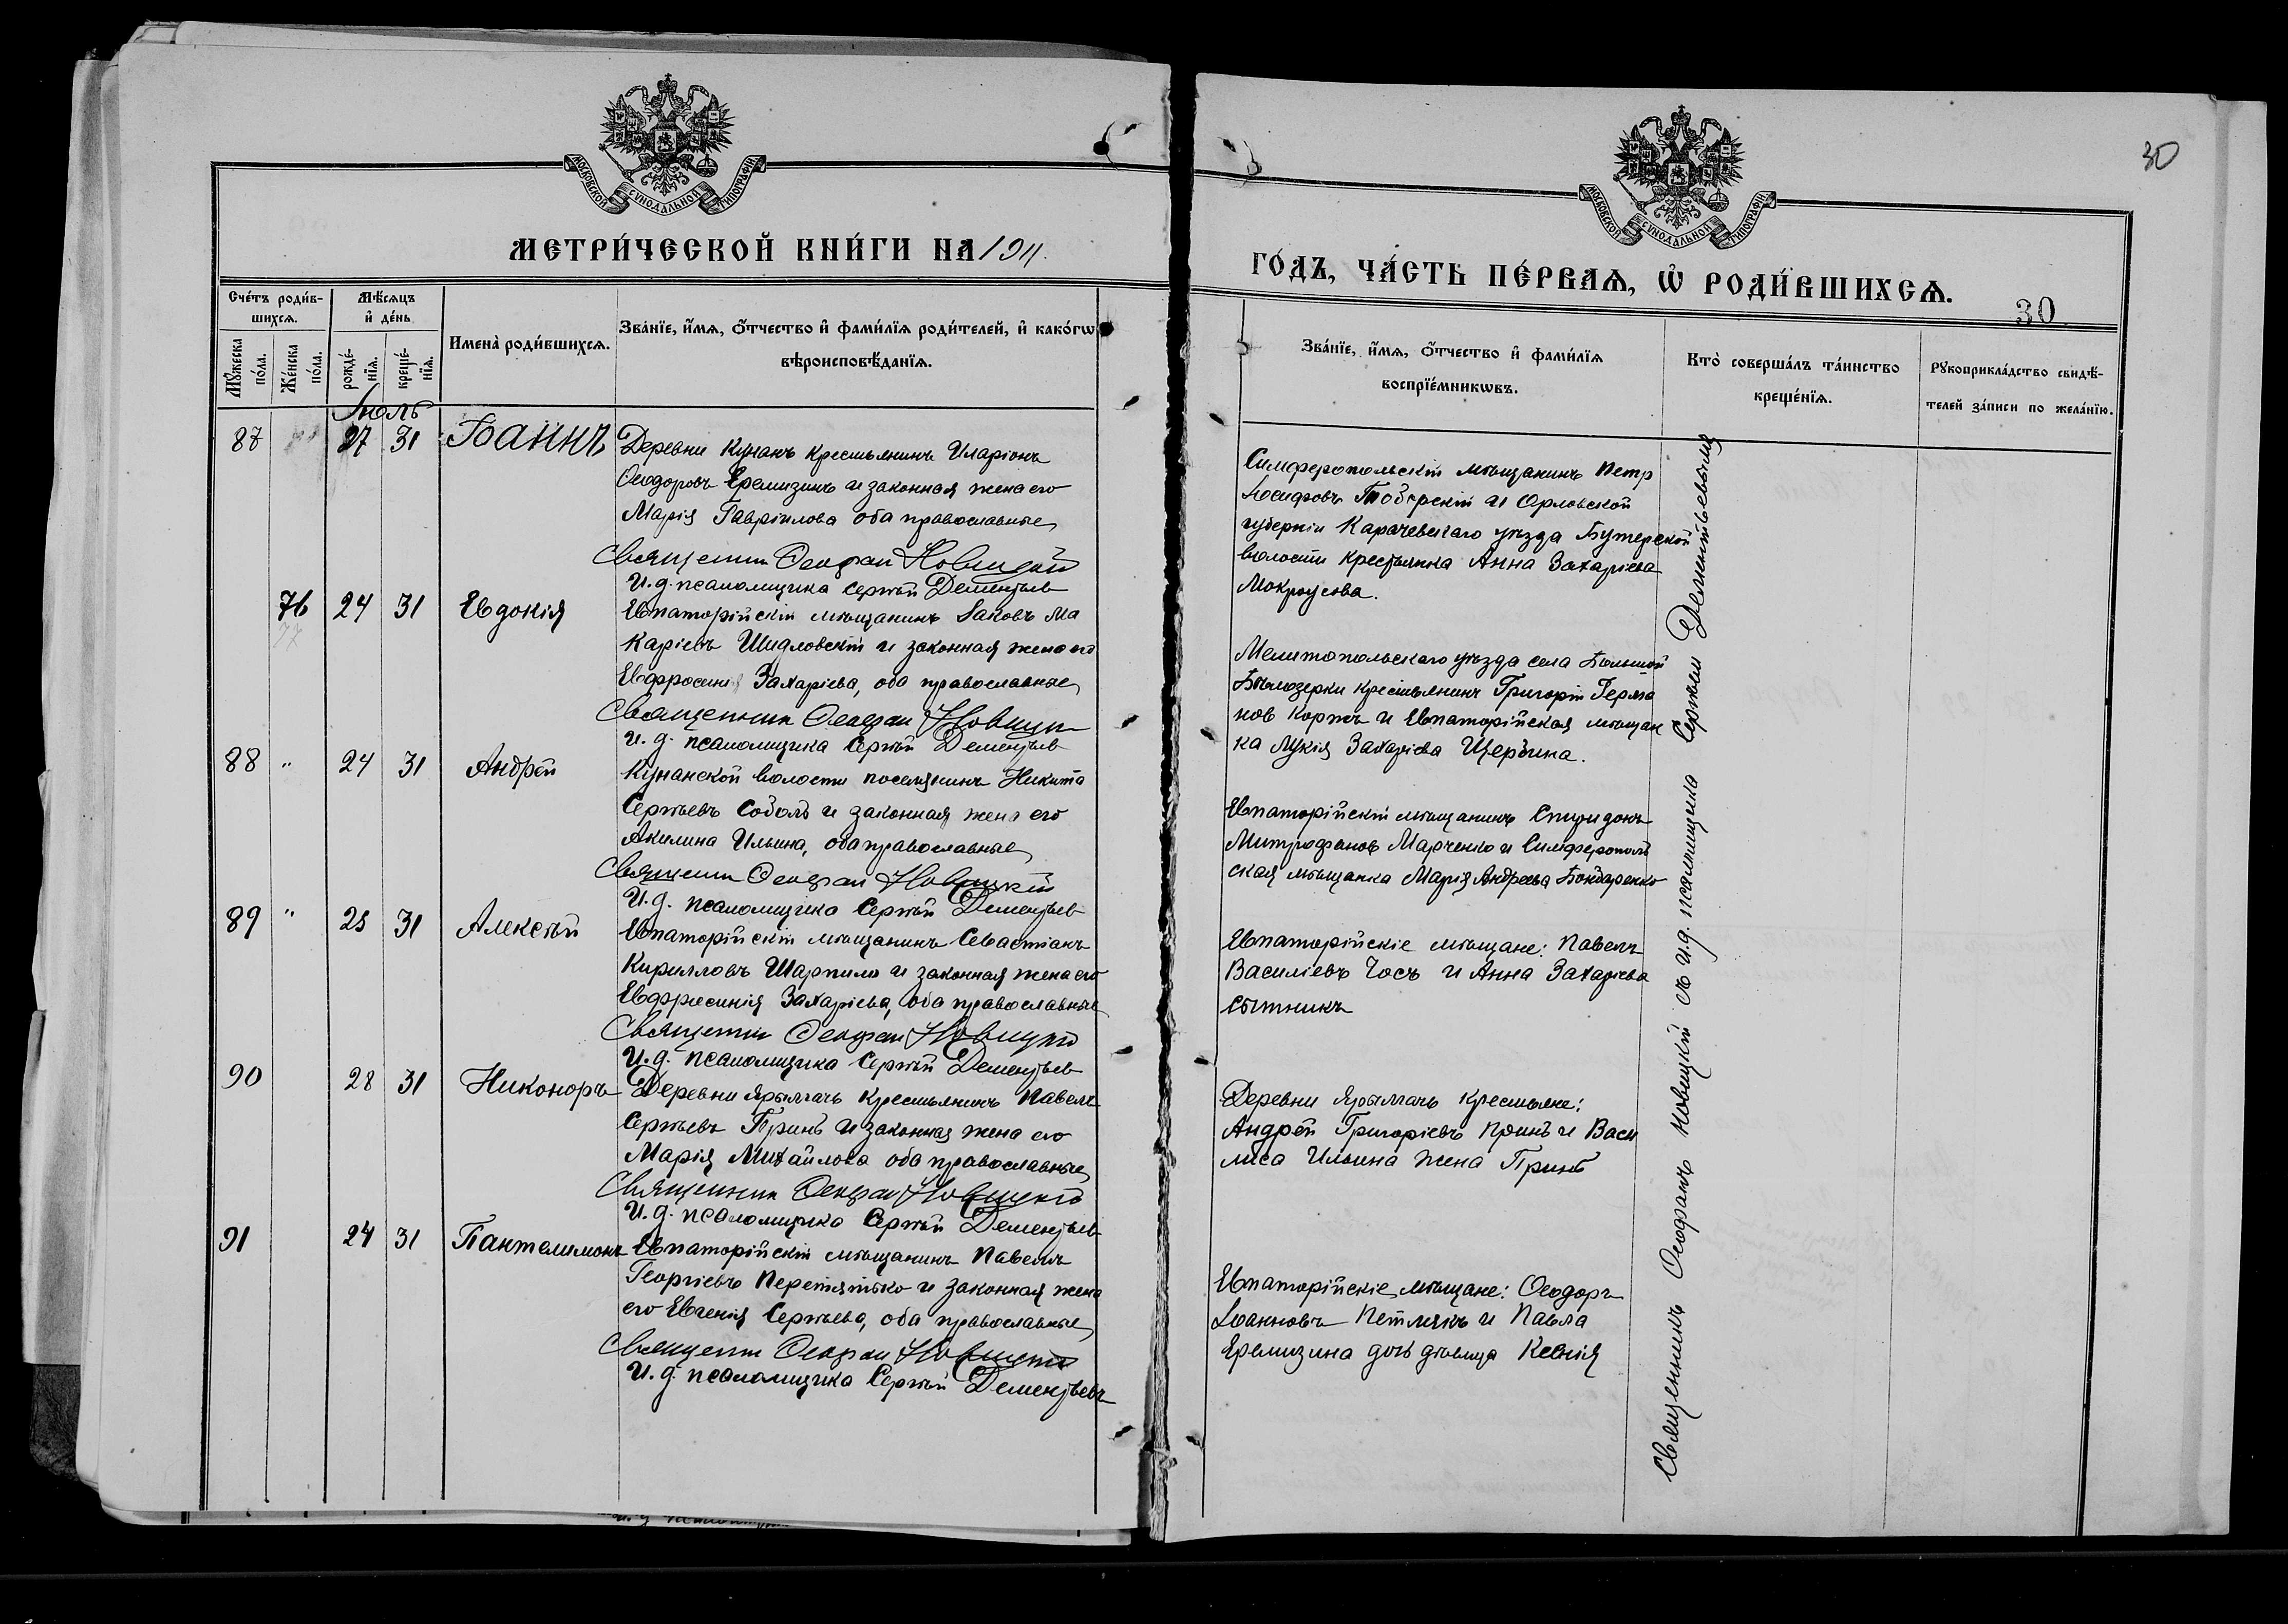 МОСКОВСКОЙ СУНОДАЛЬНОЙ ТИПОГРАФІИ
МЕТРИ́ЧЕСКОЙ КНИ́ГИ НА 1911.
Сче́тъ роди́в-
шихсѧ.
Мѣ́сѧцъ
и҆ де́нь
Мꙋ́жеска по́ла.
Же́нска по́ла.
рожде́-
нїѧ.
креще́-
нїѧ.
Имена̀ роди́вшихсѧ.
Зва́нїе, и҆́мѧ, ѻ҆́тчество и҆ фами́лїѧ роди́телей, и҆ како́гѡ
вѣроисповѣ́данїѧ.
Іюль
87 27 31 Іоаннъ
Деревни Кунанъ крестьянинъ Иларіонъ
Ѳеодоровъ Еремизинъ и законная жена его
Марія Гавріилова оба православные
Священник Ѳеофан Новицкій
И. д. псаломщика Сергѣй Дементьев
76 24 31 Евдокія
77
Евпаторійскій мѣщанинъ Іаковъ Ма
каріевъ Шидловскій и законная жена его
Евфросинія Захаріева, оба православные
Священник Ѳеофан Новицкій
И. д. псаломщика Сергѣй Дементьев
88 " 24 31 Андрей
Кунанской волости поселянинъ Никита
Сергѣевъ Соболь и законная жена его
Акилина Ильина, оба православные
Священник Ѳеофан Новицкій
И. д. псаломщика Сергѣй Дементьев
89 " 25 31 Алексѣй
Евпаторійскій мѣщанинъ Севастіанъ
Кирилловъ Шарпило и законная жена его
Евфросинія Захаріева, оба православные
Священник Ѳеофан Новицкій
И. д. псаломщика Сергѣй Дементьев
90 28 31 Никоноръ
Деревни Ярылгачъ крестьянинъ Павелъ
Сергѣевъ Принь и законная жена его
Марія Михайлова оба православные
Священник Ѳеофан Новицкій
И. д. псаломщика Сергѣй Дементьев
91 24 31 Пантелимонъ
Евпаторійскій мѣщанинъ Павелъ
Георгіевъ Перетятько и законная жена
его Евгенія Сергѣева, оба православные
Священник Ѳеофан Новицкій
И. д. псаломщика Сергѣй Дементьевъ
30
МОСКОВСКОЙ СУНОДАЛЬНОЙ ТИПОГРАФІИ
ГО́ДЪ, ЧА́СТЬ ПЕ́РВАѦ, Ѡ҆ РОДИ́ВШИХСѦ.
30
Зва́нїе, и҆́мѧ, ѻ҆́тчество и҆ фами́лїѧ
воспрїе́мникѡвъ.
Кто̀ соверша́лъ та́инство
креще́нїѧ.
Рꙋкоприкла́дство свидѣ́-
телей за́писи по жела́нїю.
Симферопольскій мѣщанинъ Петр
Іосифовъ Тоборскій и Орловской
губерніи Карачевскаго уѣзда Бутерской
волости крестьянка Анна Захаріева
Мокроусова.
Мелитопольскаго уѣзда села Большой
Бѣлозерки крестьянинъ Григорій Герма
нов Коржъ и Евпаторійская мѣщан
ка Лукія Захаріева Щербина.
Евпаторійскій мѣщанинъ Спиридонъ
Митрофановъ Марченко и Симферополь
ская мѣщанка Марія Андреева Бондаренко
Евпаторійскіе мѣщане: Павелъ
Василіевъ Чосъ и Анна Захаріева
Сытникъ
Деревни Ярылгачъ крестьяне:
Андрей Григоріевъ Принь и Васи
лиса Ильина жена Принь
Евпаторійскіе мѣщане: Ѳеодоръ
Іоанновъ Петлякъ и Павла
Еремизина дочь дѣвица Ксенія
Священникъ Ѳеофанъ Новицкій съ и.д. псаломщика Сергѣем Дементьевымъ